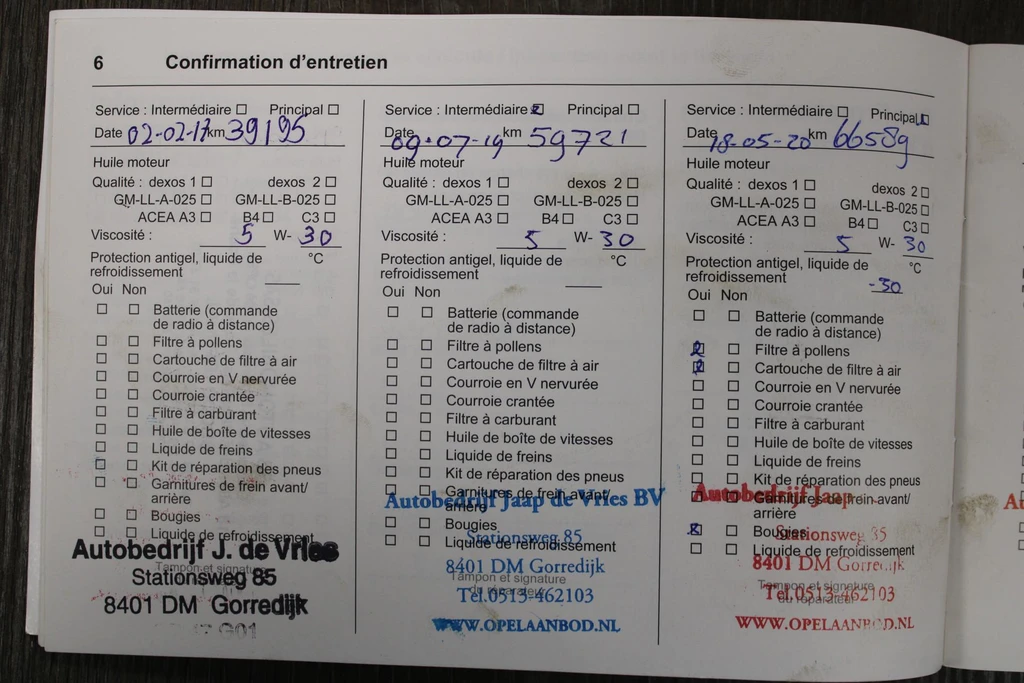 6 Confirmation d'entretien
Service : Intermédiaire ☐ Principal ☐
Date 02-02-17 km 39195
Huile moteur
Qualité : dexos 1 ☐ dexos 2 ☐
GM-LL-A-025 ☐ GM-LL-B-025 ☐
ACEA A3 ☐ B4 ☐ C3 ☐
Viscosité : 5 W- 30
Protection antigel, liquide de °C
refroidissement
Oui Non
☐ ☐ Batterie (commande
de radio à distance)
☐ ☐ Filtre à pollens
☐ ☐ Cartouche de filtre à air
☐ ☐ Courroie en V nervurée
☐ ☐ Courroie crantée
☐ ☐ Filtre à carburant
☐ ☐ Huile de boîte de vitesses
☐ ☐ Liquide de freins
☐ ☐ Kit de réparation des pneus
☐ ☐ Garnitures de frein avant/
arrière
☐ ☐ Bougies
☐ ☐ Liquide de refroidissement
Autobedrijf J. de Vries
Tampon et signature
Stationsweg 85
8401 DM Gorredijk
Service : Intermédiaire ☒ Principal ☐
Date 09-07-19 km 59721
Huile moteur
Qualité : dexos 1 ☐ dexos 2 ☐
GM-LL-A-025 ☐ GM-LL-B-025 ☐
ACEA A3 ☐ B4 ☐ C3 ☐
Viscosité : 5 W- 30
Protection antigel, liquide de °C
refroidissement
Oui Non
☐ ☐ Batterie (commande
de radio à distance)
☐ ☐ Filtre à pollens
☐ ☐ Cartouche de filtre à air
☐ ☐ Courroie en V nervurée
☐ ☐ Courroie crantée
☐ ☐ Filtre à carburant
☐ ☐ Huile de boîte de vitesses
☐ ☐ Liquide de freins
☐ ☐ Kit de réparation des pneus
☐ ☐ Garnitures de frein avant/
Autobedrijf Jaap de Vries BV
arrière
☐ ☐ Bougies
Stationsweg 85
☐ ☐ Liquide de refroidissement
8401 DM Gorredijk
Tampon et signature
du réparateur
Tel.0513-462103
WWW.OPELAANBOD.NL
Service : Intermédiaire ☐ Principal ☒
Date 18-05-20 km 66589
Huile moteur
Qualité : dexos 1 ☐ dexos 2 ☐
GM-LL-A-025 ☐ GM-LL-B-025 ☐
ACEA A3 ☐ B4 ☐ C3 ☐
Viscosité : 5 W- 30
Protection antigel, liquide de °C
refroidissement -30
Oui Non
☐ ☐ Batterie (commande
de radio à distance)
☒ ☐ Filtre à pollens
☒ ☐ Cartouche de filtre à air
☐ ☐ Courroie en V nervurée
☐ ☐ Courroie crantée
☐ ☐ Filtre à carburant
☐ ☐ Huile de boîte de vitesses
☐ ☐ Liquide de freins
☐ ☐ Kit de réparation des pneus
☐ ☐ Garnitures de frein avant/
Autobedrijf Jaap
arrière
☒ ☐ Bougies
Stationsweg 85
☐ ☐ Liquide de refroidissement
8401 DM Gorredijk
Tampon et signature
du réparateur
Tel.0513-462103
WWW.OPELAANBOD.NL